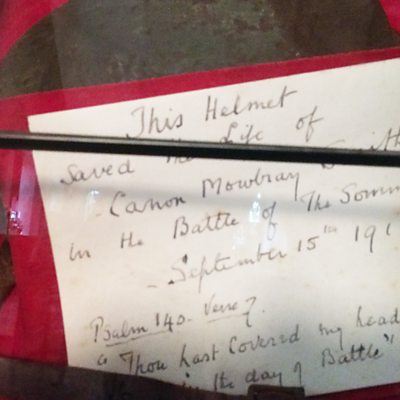 This Helmet
Saved the Life of
Canon Mowbray Smith
in the Battle of The Somm
- September 15th 191
Psalm 140. Verse 7.
"Thou hast Covered my head
in the day of Battle"